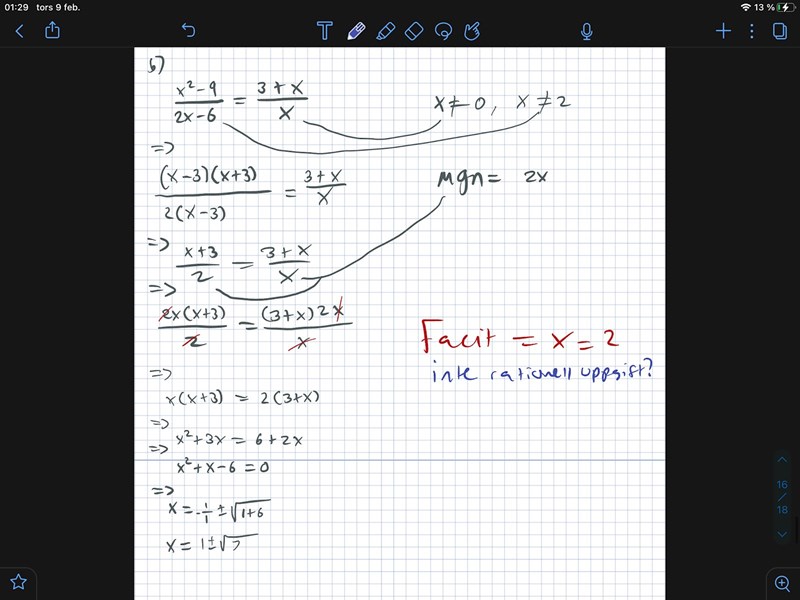 01:29 tors 9 feb. 13 %
6)
x²-9/2x-6 = 3+x/x x≠0, x≠2
=>
(x-3)(x+3)/2(x-3) = 3+x/x mgn= 2x
=> x+3/2 = 3+x/x
=>
2x(x+3)/2 = (3+x)2x/x
Facit = x=2
inte rationell uppgift?
=>
x(x+3) = 2(3+x)
=>
=> x²+3x = 6+2x
x²+x-6=0
=>
x=-1/1±√1+6
x= 1±√7
16
/
18